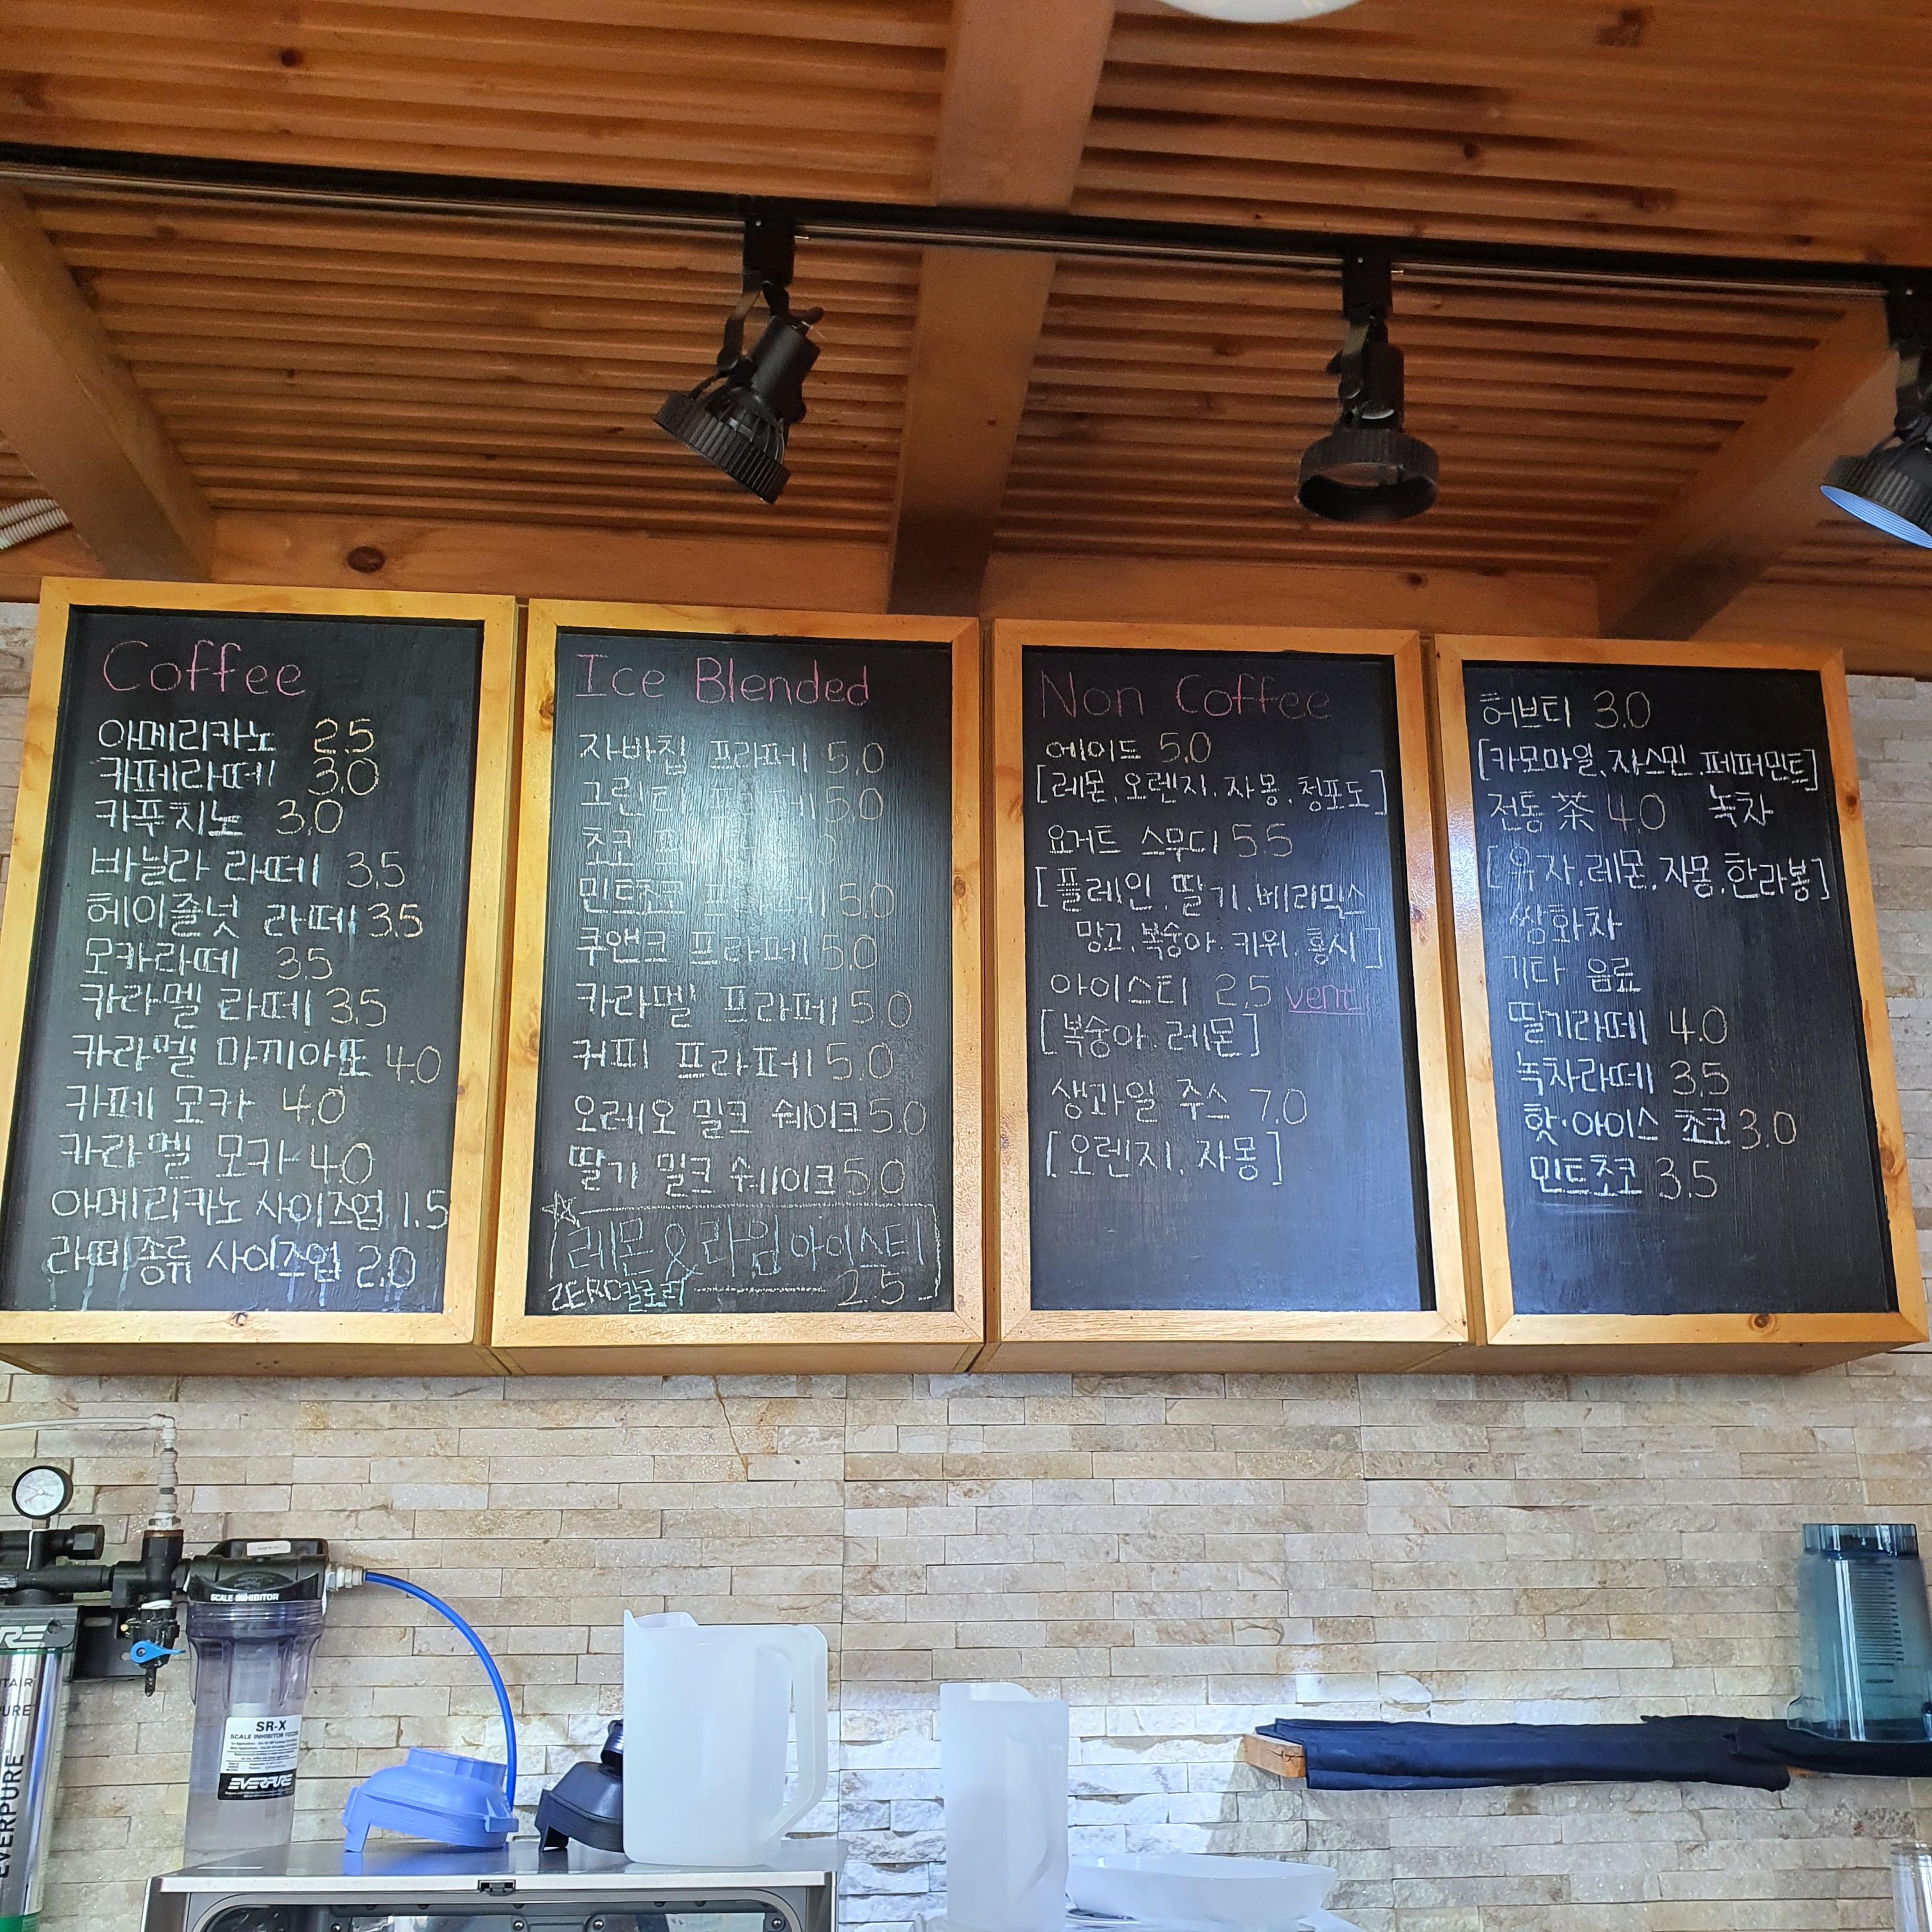 Coffee
아메리카노 2.5
카페라떼 3.0
카푸치노 3.0
바닐라 라떼 3.5
헤이즐넛 라떼 3.5
모카라떼 3.5
카라멜 라떼 3.5
카라멜 마끼아또 4.0
카페 모카 4.0
카라멜 모카 4.0
아메리카노 사이즈업 1.5
라떼종류 사이즈업 2.0
Ice Blended
자바칩 프라페 5.0
그린티 프라페 5.0
초코
민트초코 프라페 5.0
쿠앤크 프라페 5.0
카라멜 프라페 5.0
커피 프라페 5.0
오레오 밀크 쉐이크 5.0
딸기 밀크 쉐이크 5.0
레몬&라임아이스티
ZERO칼로리 2.5
Non Coffee
에이드 5.0
[레몬, 오렌지, 자몽, 청포도]
요거트 스무디 5.5
[플레인, 딸기, 베리믹스
망고, 복숭아, 키위, 홍시]
아이스티 2.5 venti
[복숭아, 레몬]
생과일 주스 7.0
[오렌지, 자몽]
허브티 3.0
[카모마일, 쟈스민, 페퍼민트]
전통 茶 4.0 녹차
[유자, 레몬, 자몽, 한라봉]
쌍화차
기타 음료
딸기라떼 4.0
녹차라떼 3.5
핫·아이스 초코 3.0
민트초코 3.5
SCALE INHIBITOR
SR-X
SCALE INHIBITOR FEEDER
EVERPURE
EVERPURE